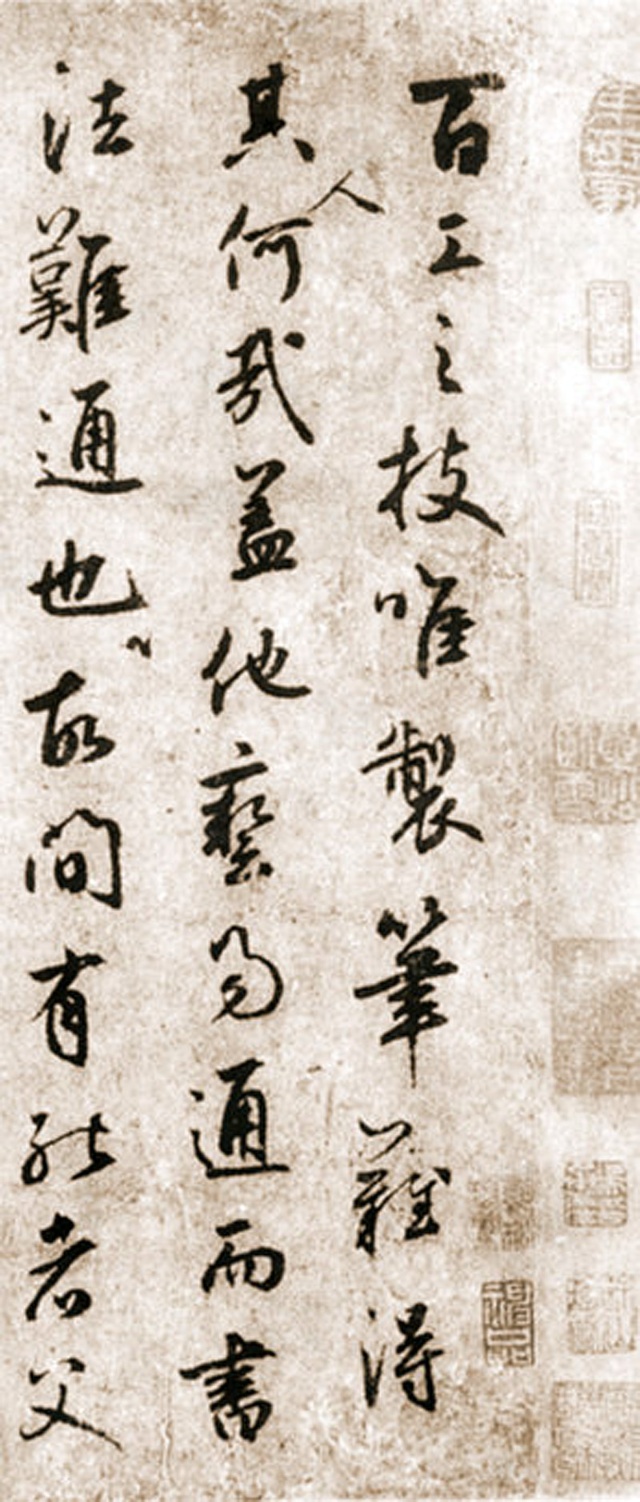 百工之技唯製筆難得
其人何哉蓋他藝易通而書
法難通也故間有能者父